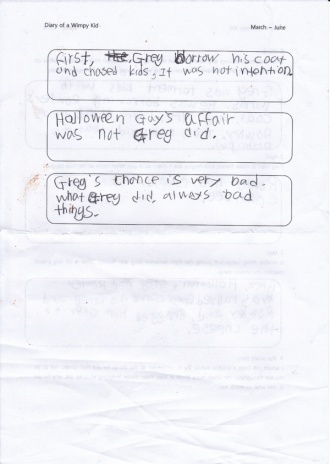 Diary of a Wimpy Kid
March – June
First, the Greg borrow his coat
and chased kids, It was not intention
Halloween Guy's affair
was not Greg did.
Greg's chance is very bad.
what Greg did, always bad
things.